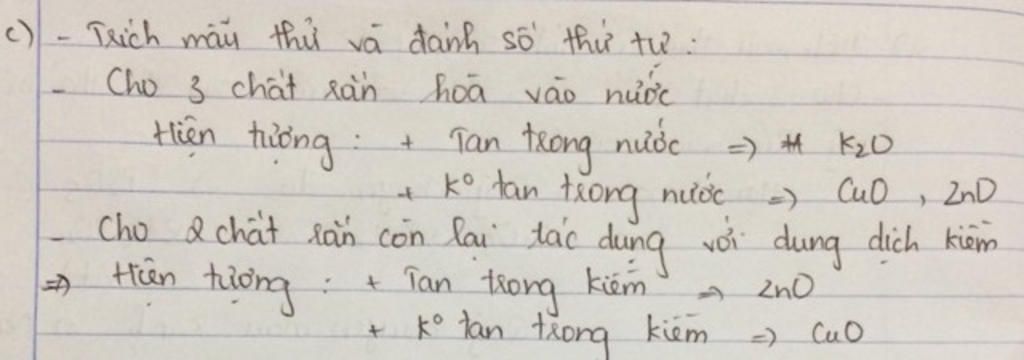 c) - Trích mẫu thử và đánh số thứ tự.
- Cho 3 chất rắn hoà vào nước
Hiện tượng : + Tan trong nước => K₂O
+ K° tan trong nước => CuO , ZnO
- Cho 2 chất rắn còn lại tác dụng với dung dịch kiềm
=> Hiện tượng : + Tan trong kiềm => ZnO
+ K° tan trong kiềm => CuO